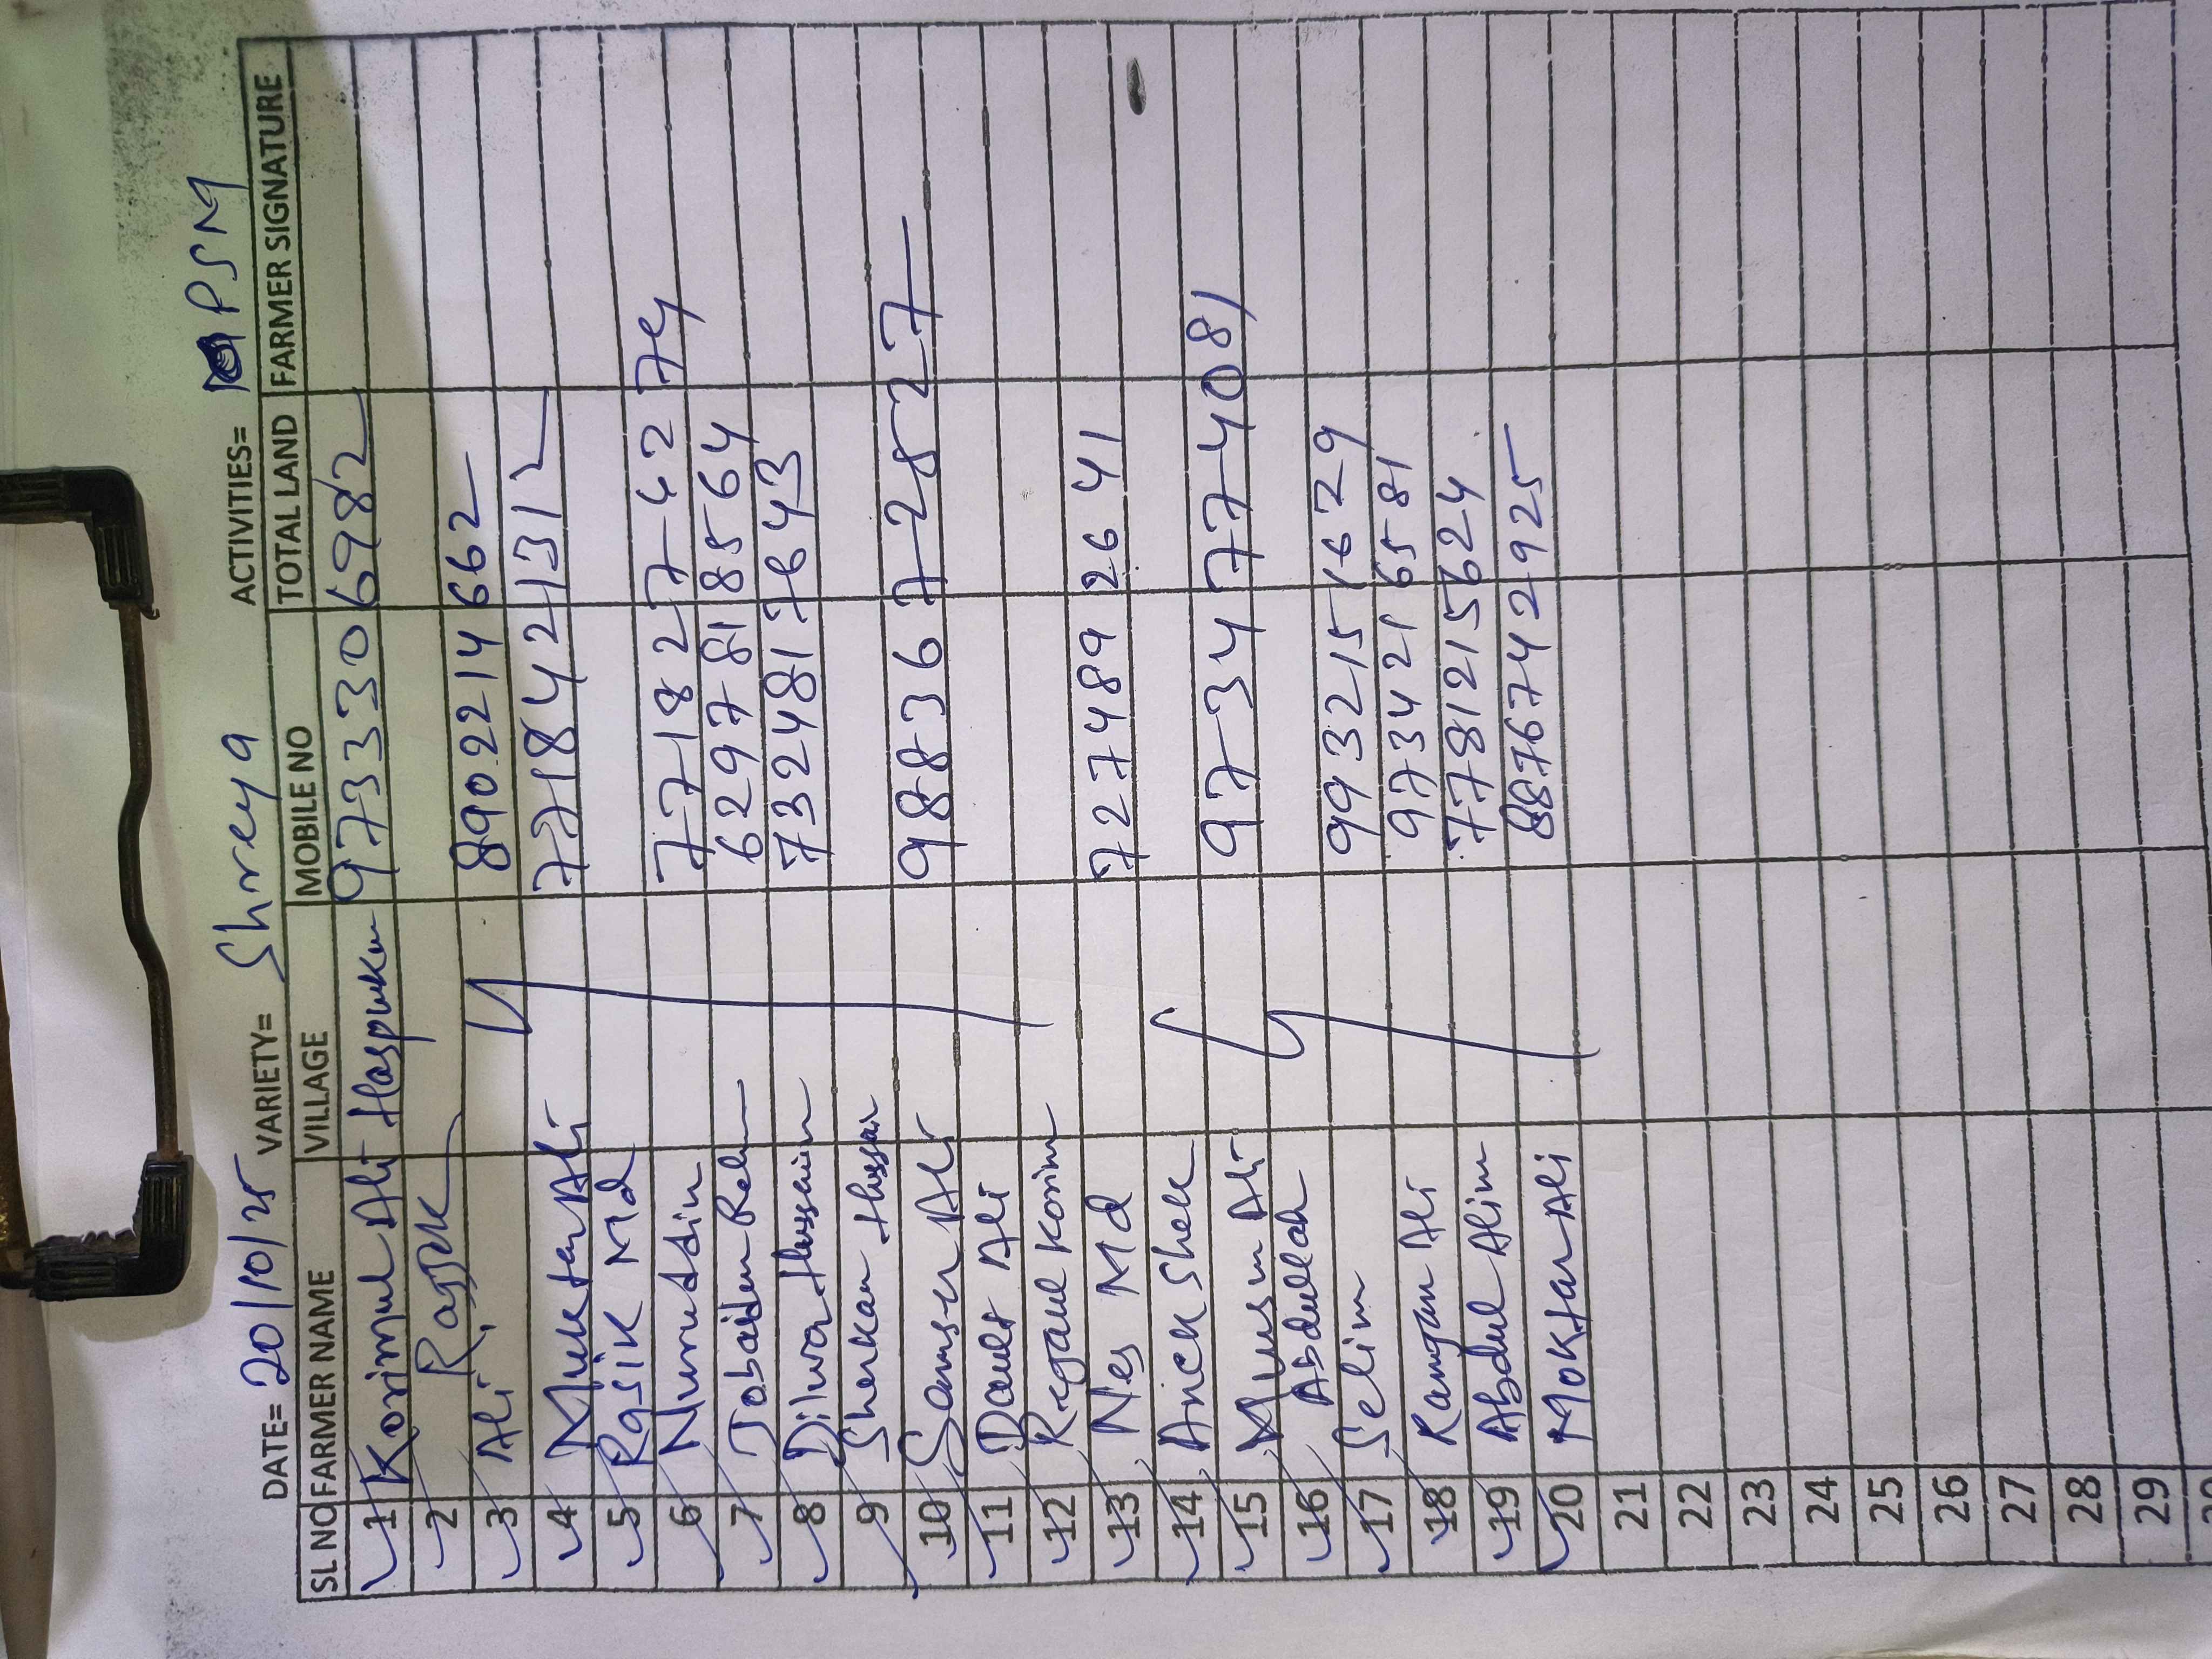 DATE= 20/10/25 VARIETY= Shreya ACTIVITIES= PSM
SL NO FARMER NAME VILLAGE MOBILE NO TOTAL LAND FARMER SIGNATURE
1 Korimul Ali Haspukur 9733306982
2 Rajjk
3 Ali 8902214662
4 Muktar Ali 7718421312
5 Rasik Md
6 Nuruddin 7718277-4274
7 Jobaidur Rehm 6297818564
8 Dilwar Hussain 7324817643
9 Sherkan Hussain
10 Samser Ali 9883672827
11 Dault Ali
12 Rejaul Korim
13 Nes Md 7274892641
14 Anick Shek
15 Musu Ali 9734774081
16 Abdullah
17 Selim 9932151629
18 Ramjan Ali 9734216581
19 Abdul Alim 7781215624
20 Moktar Ali 8876742925
21
22
23
24
25
26
27
28
29